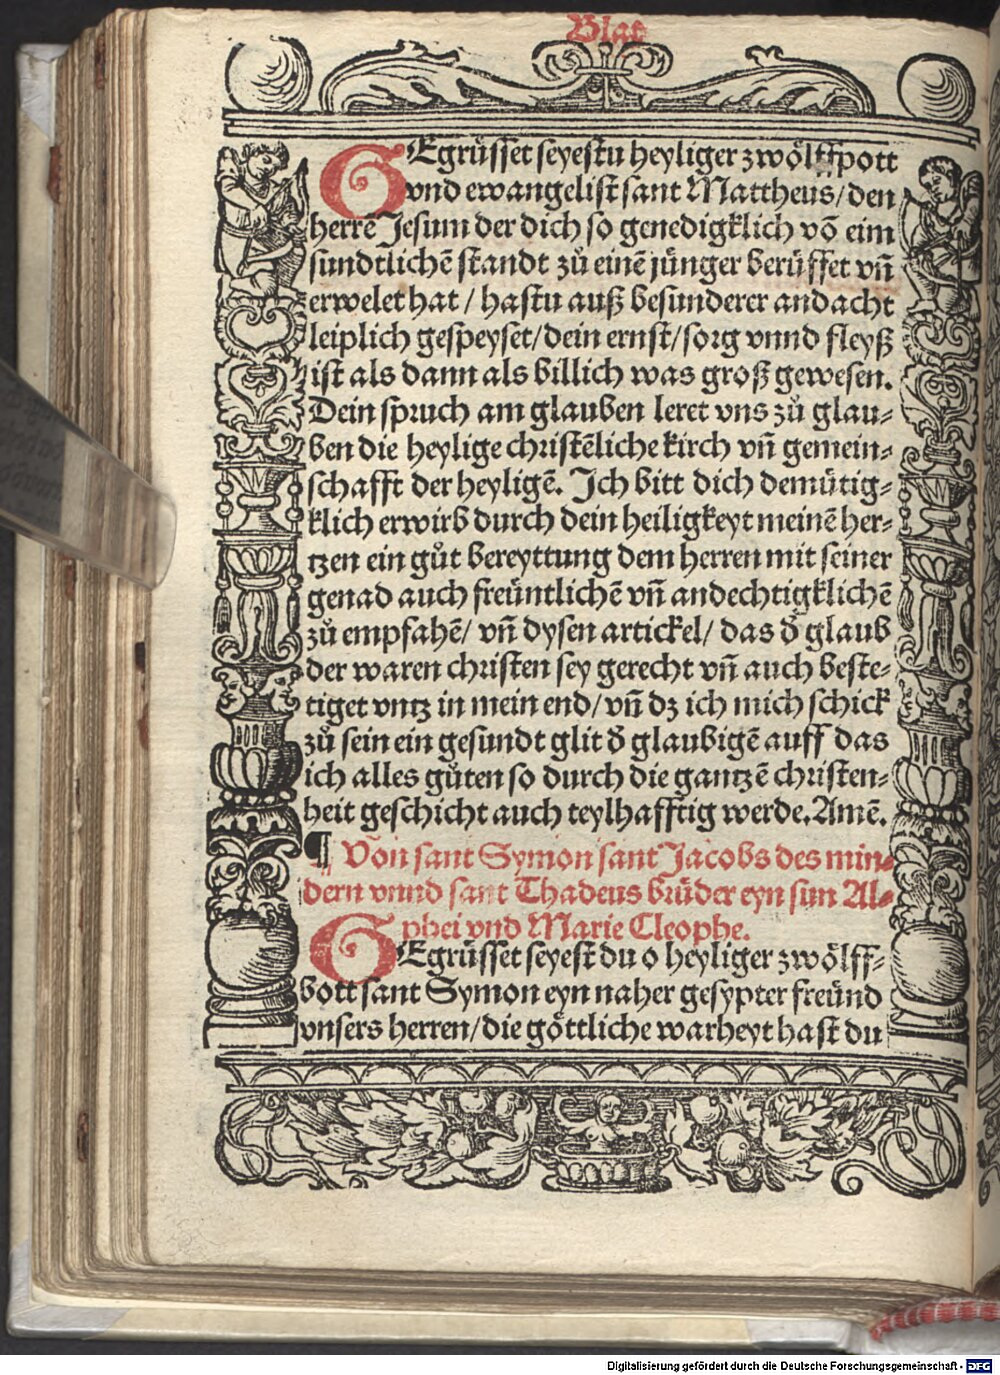 Blat
GEgrüsset seyestu heyliger zwölffpott
vnd ewangelist sant Mattheus/ den
herrē Jesum der dich so genedigklich vō eim
sundtlichē standt zů einē jünger berüffet vñ
erwelet hat / hastu auß besunderer andacht
leiplich gespeyset/ dein ernst/ sorg vnnd fleyß
ist als dann als billich was groß gewesen.
Dein spruch am glauben leret vns zů glau⸗
ben die heylige christēliche kirch vñ gemein⸗
schafft der heyligē. Ich bitt dich demütig⸗
klich erwirb durch dein heiligkeyt meinē her⸗
tzen ein gůt bereyttung dem herren mit seiner
genad auch freüntlichē vñ andechtigklichē
zů empfahē/ vñ dysen artickel/ das d̄ glaub
der waren christen sey gerecht vñ auch beste⸗
tiget vntz in mein end/ vñ dz ich mich schick
zů sein ein gesundt glit d̄ glaubigē auff das
ich alles gůten so durch die gantzē christen⸗
heit geschicht auch teylhafftig werde. Amē.
¶ Von sant Symon sant Jacobs des min⸗
dern vnnd sant Thadeus brüder eyn sun Al⸗
phei vnd Marie Cleophe.
GEgrüsset seyest du o heyliger zwölff⸗
bott sant Symon eyn naher gesypter freünd
vnsers herren/ die göttliche warheyt hast du
Digitalisierung gefördert durch die Deutsche Forschungsgemeinschaft - DFG